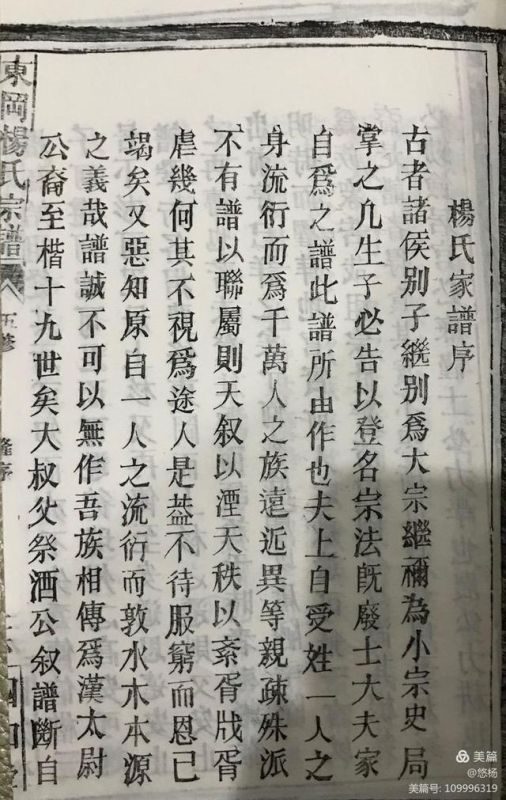 楊氏家譜序
古者諸侯別子繼別爲大宗繼禰為小宗史局
掌之凢生子必告以登名宗法旣廢士大夫家
自爲之譜此譜所由作也夫上自受姓一人之
身流衍而爲千萬人之族遠近異等親疎殊派
不有譜以聯屬則天叙以湮天秩以紊胥戕胥
虐幾何其不視爲途人是葢不待服窮而恩已
竭矣又惡知原自一人之流衍而敦水木本源
之義哉譜誠不可以無作吾族相傳爲漢太尉
公裔至楷十九世矣大叔父祭酒公叙譜斷自
東岡楊氏宗譜
五修
美篇
@悠杨
美篇号: 109996319